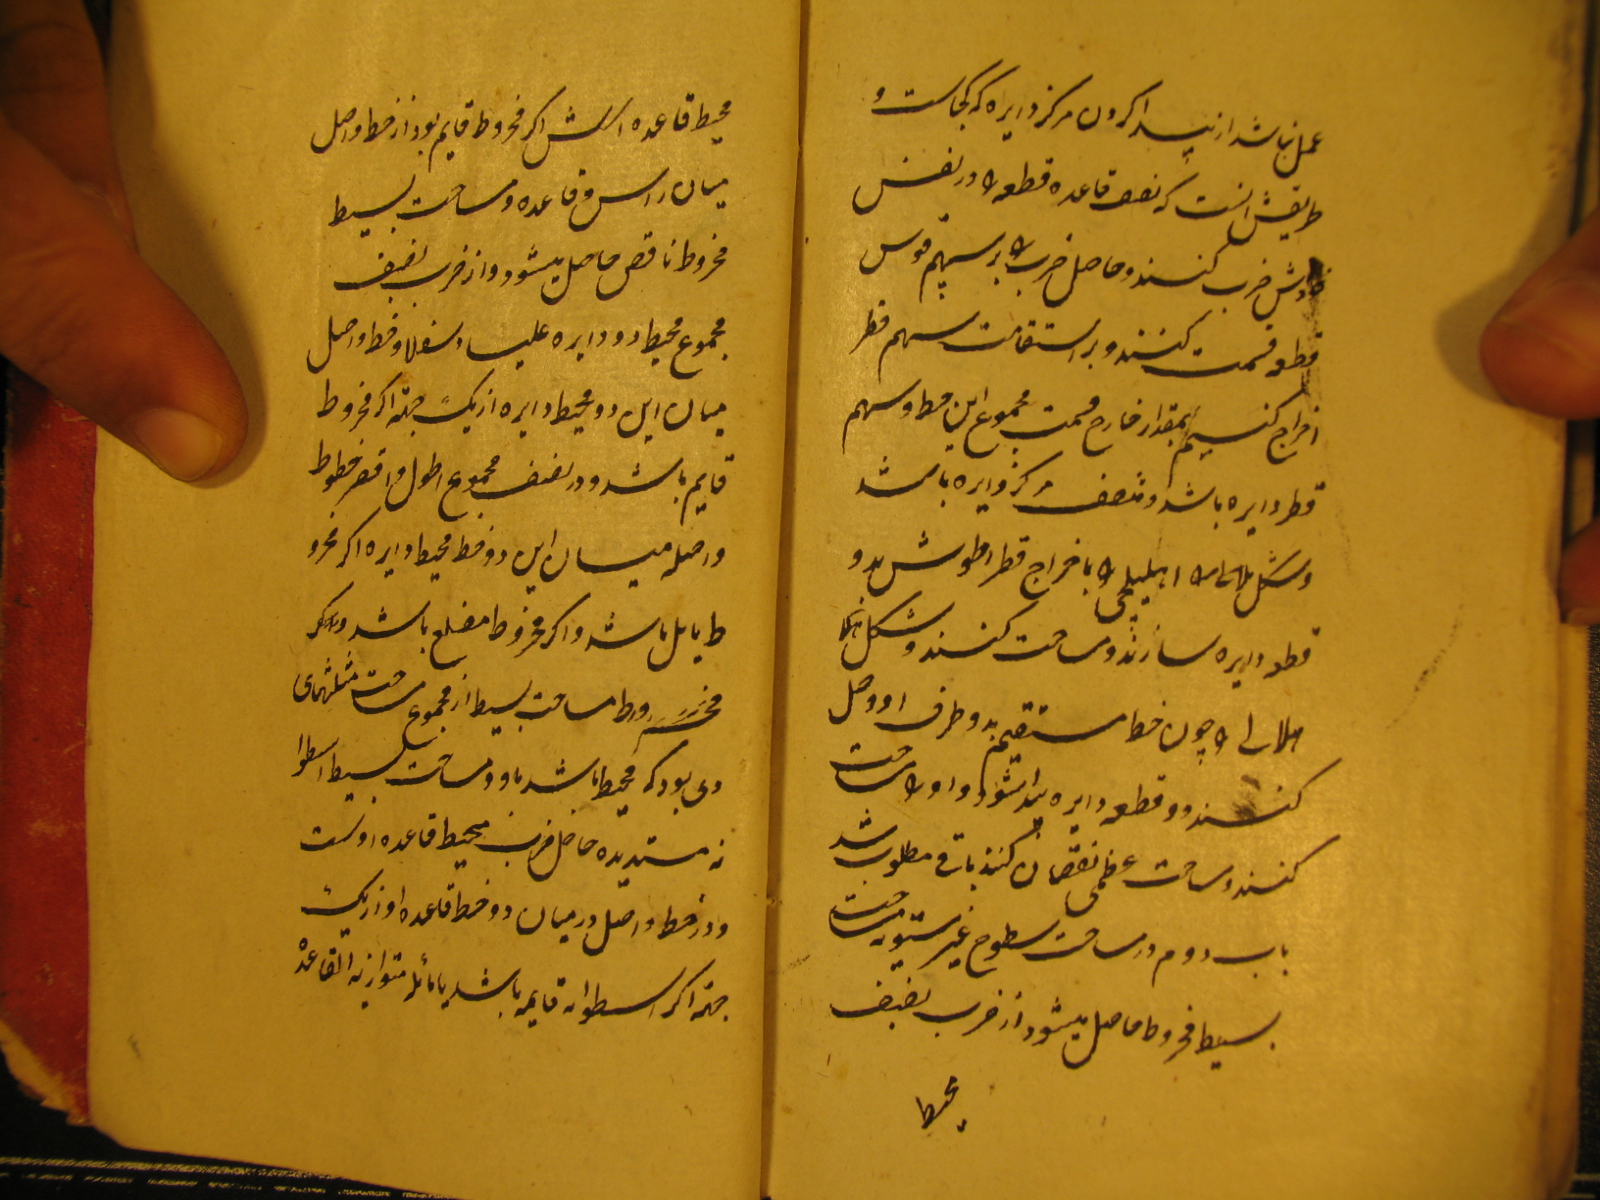 عمل نباشد از پیدا کردن مرکز دایره که کجاست و
طریقش آنست که نصف قاعده قطعه را در نفس
خودش ضرب کنند و حاصل ضرب را بر سهم قوس
قطعه قسمت کنند و بر استقامت سهم قطر
اخراج کنیم بمقدار خارج قسمت مجموع این خط و سهم
قطر دایره باشد و منصف مرکز دایره باشد
و شکل اهلیلجی را باخراج قطر اطولش بدو
قطعه دایره سازند و مساحت کنند و شکل
هلالی را چون خط مستقیم بدو طرف او وصل
کنند دو قطعه دایره پیدا شود و او را مساحت
کنند و مساحت عظمی نقصان کنند باقی مطلوب باشد
باب دوم در مساحت سطوح غیر مستویه مساحت
بسیط مخروط حاصل میشود از ضرب نصف
محیط
محیط قاعده اش اکر مخروط قایم بود از خط واصل
میان راس و قاعده و مساحت بسیط
مخروط ناقص حاصل میشود و از ضرب نصف
مجموع محیط دو دایره علیا و سفلا و خط واصل
میان این دو محیط دایره از یک جهة اکر مخروط
قایم باشد و در نصف مجموع اطول و اقصر خطوط
واصله میان این دو خط محیط دایره اکر مخرو
ط مایل باشد و اکر مخروط مضلع باشد
مخروط مساحت بسیط از مجموع مساحت مثلثهای
وی بود که محیط باشد باو و مساحت بسیط اسطوا
نه مستدیره حاصل ضرب محیط قاعده اوست
و در خط واصل در میان دو خط قاعده او از یک
جهة اکر اسطوانه قایمه باشد یا مائله متوازیة القاعده